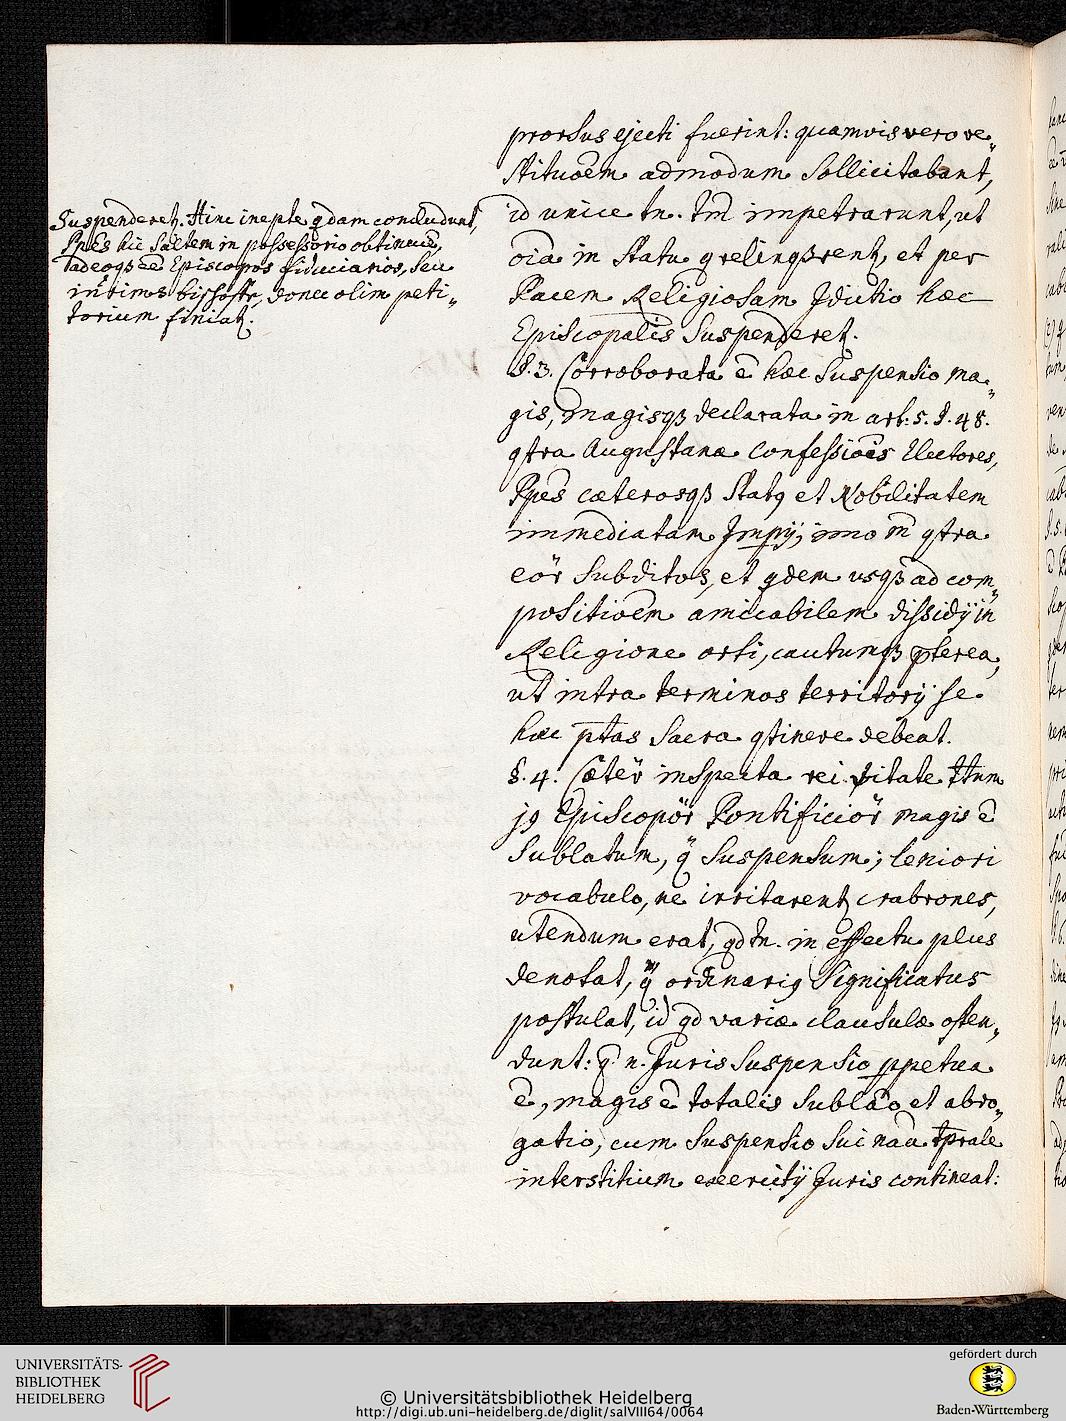 Suspenderet. Hinc inepte qdam concludunt,
Ppēs hic saltem in possessorio obtinuiē,
adeoqȝ ēē Episcopos fiduciarios, seu
interims bischoffe, donec olim peti-
torium finiat:
prorsus ejecti fuerint: quamvis vero re-
stituōēm admodum sollicitabant,
id unice tn. tm̄ impetrarunt, ut
oīa in statu q relinqȝrent, et per
Pacem Religiosam Jdictio hæc
Episcopalis Suspenderet.
§. 3. Corroborata ē hæc Suspensio ma-
gis, magisqȝ declarata in art: 5. §. 48.
qtra Augustanæ Confessiōīs Electores,
Ppēs cæterosqȝ Statq et Nobilitatem
immediatam Jmpij; imo m̄ qtra
eōr Subditos, et qdem usqȝ ad com-
positiōēm amicabilem dissidij in
Religione orti, cautumqȝ ptereа,
ut intra terminos territorij se
hæc p̄tas Sacra qtinere debeat.
§. 4. Cæter̄ inspecta rei v̄itate ttum
jq Episcopōr Pontificiōr magis ē
Sublatum, q̄ Suspensum; leniori
vocabulo, ne irritarent crabrones,
utendum erat, qd tn. in effectu plus
denotat, q̄ ordinariq Significatus
postulat, id qd variæ clausulæ osten-
dunt: q. n. Juris Suspensio ppetua
ē, magis ē totalis Sublāo et abro-
gatio, cum Suspensio sui nāa tp̄rale
interstitium exercitij Juris contineat:
UNIVERSITÄTS-
BIBLIOTHEK
HEIDELBERG
© Universitätsbibliothek Heidelberg
http://digi.ub.uni-heidelberg.de/diglit/salVIII64/0064
gefördert durch
Baden-Württemberg